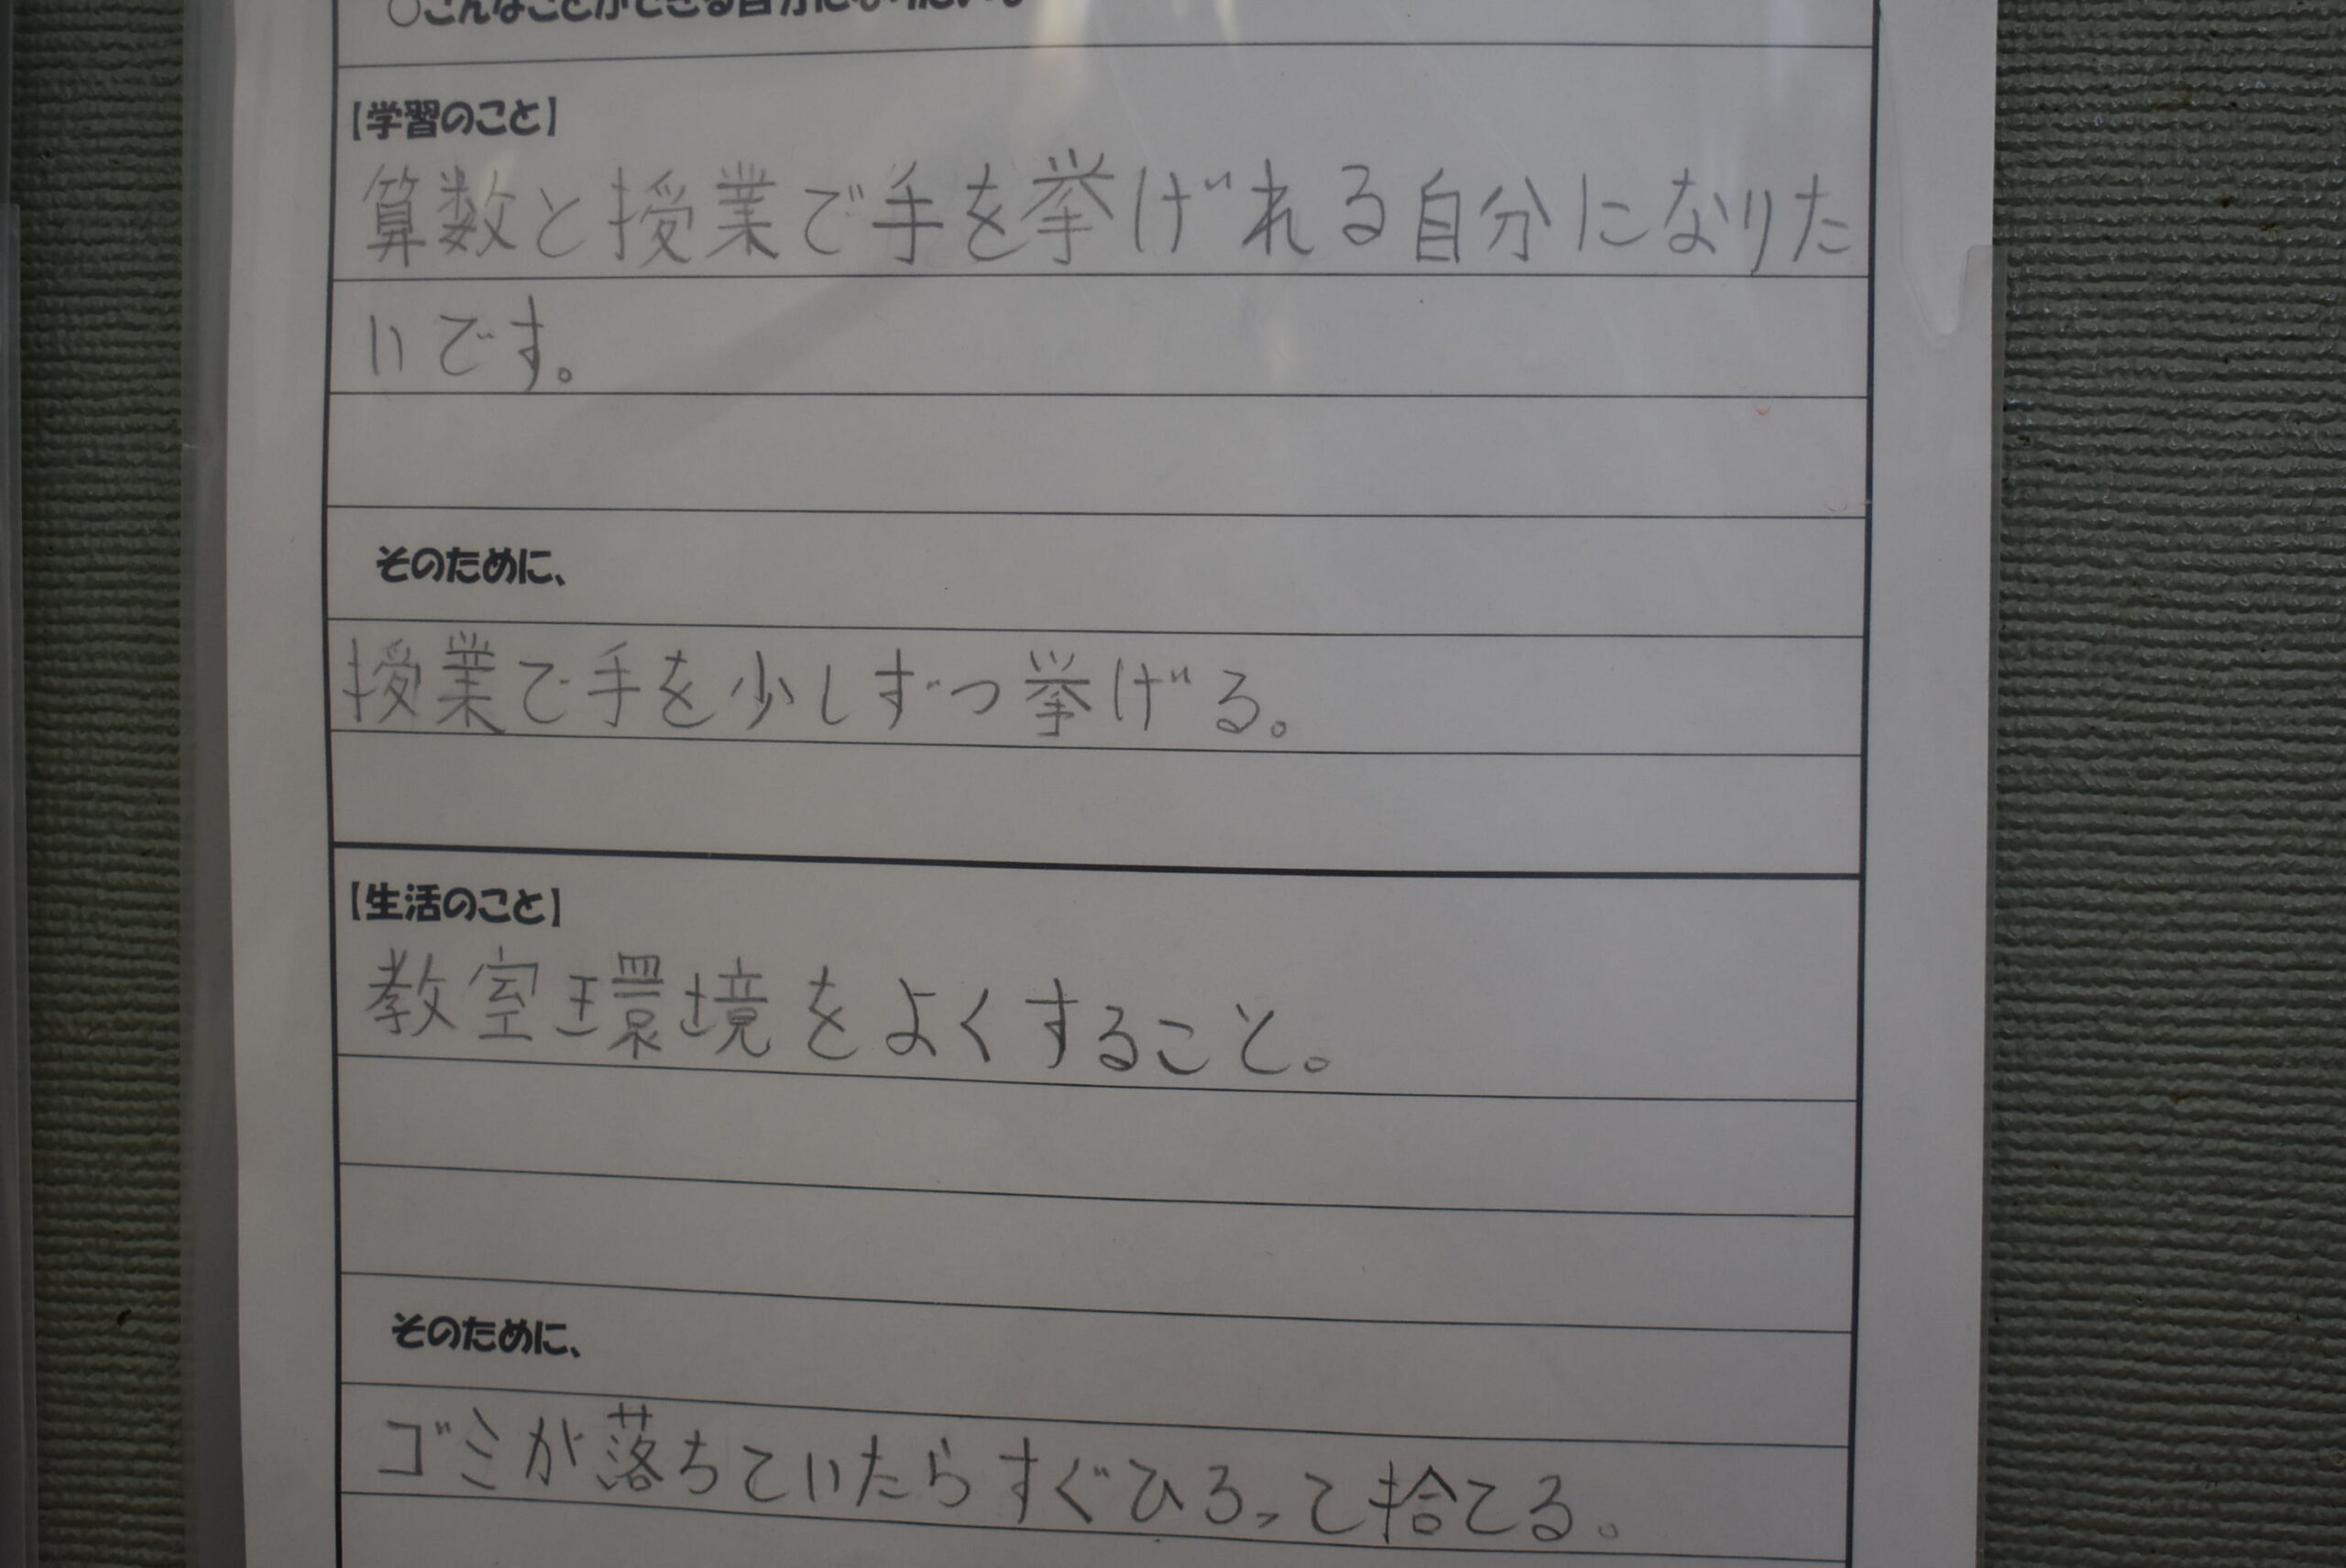 ○こんなことができる自分になりたい。
【学習のこと】
算数と授業で手を挙げれる自分になりた
いです。
そのために、
授業で手を少しずつ挙げる。
【生活のこと】
教室環境をよくすること。
そのために、
ゴミが落ちていたらすぐひろって捨てる。